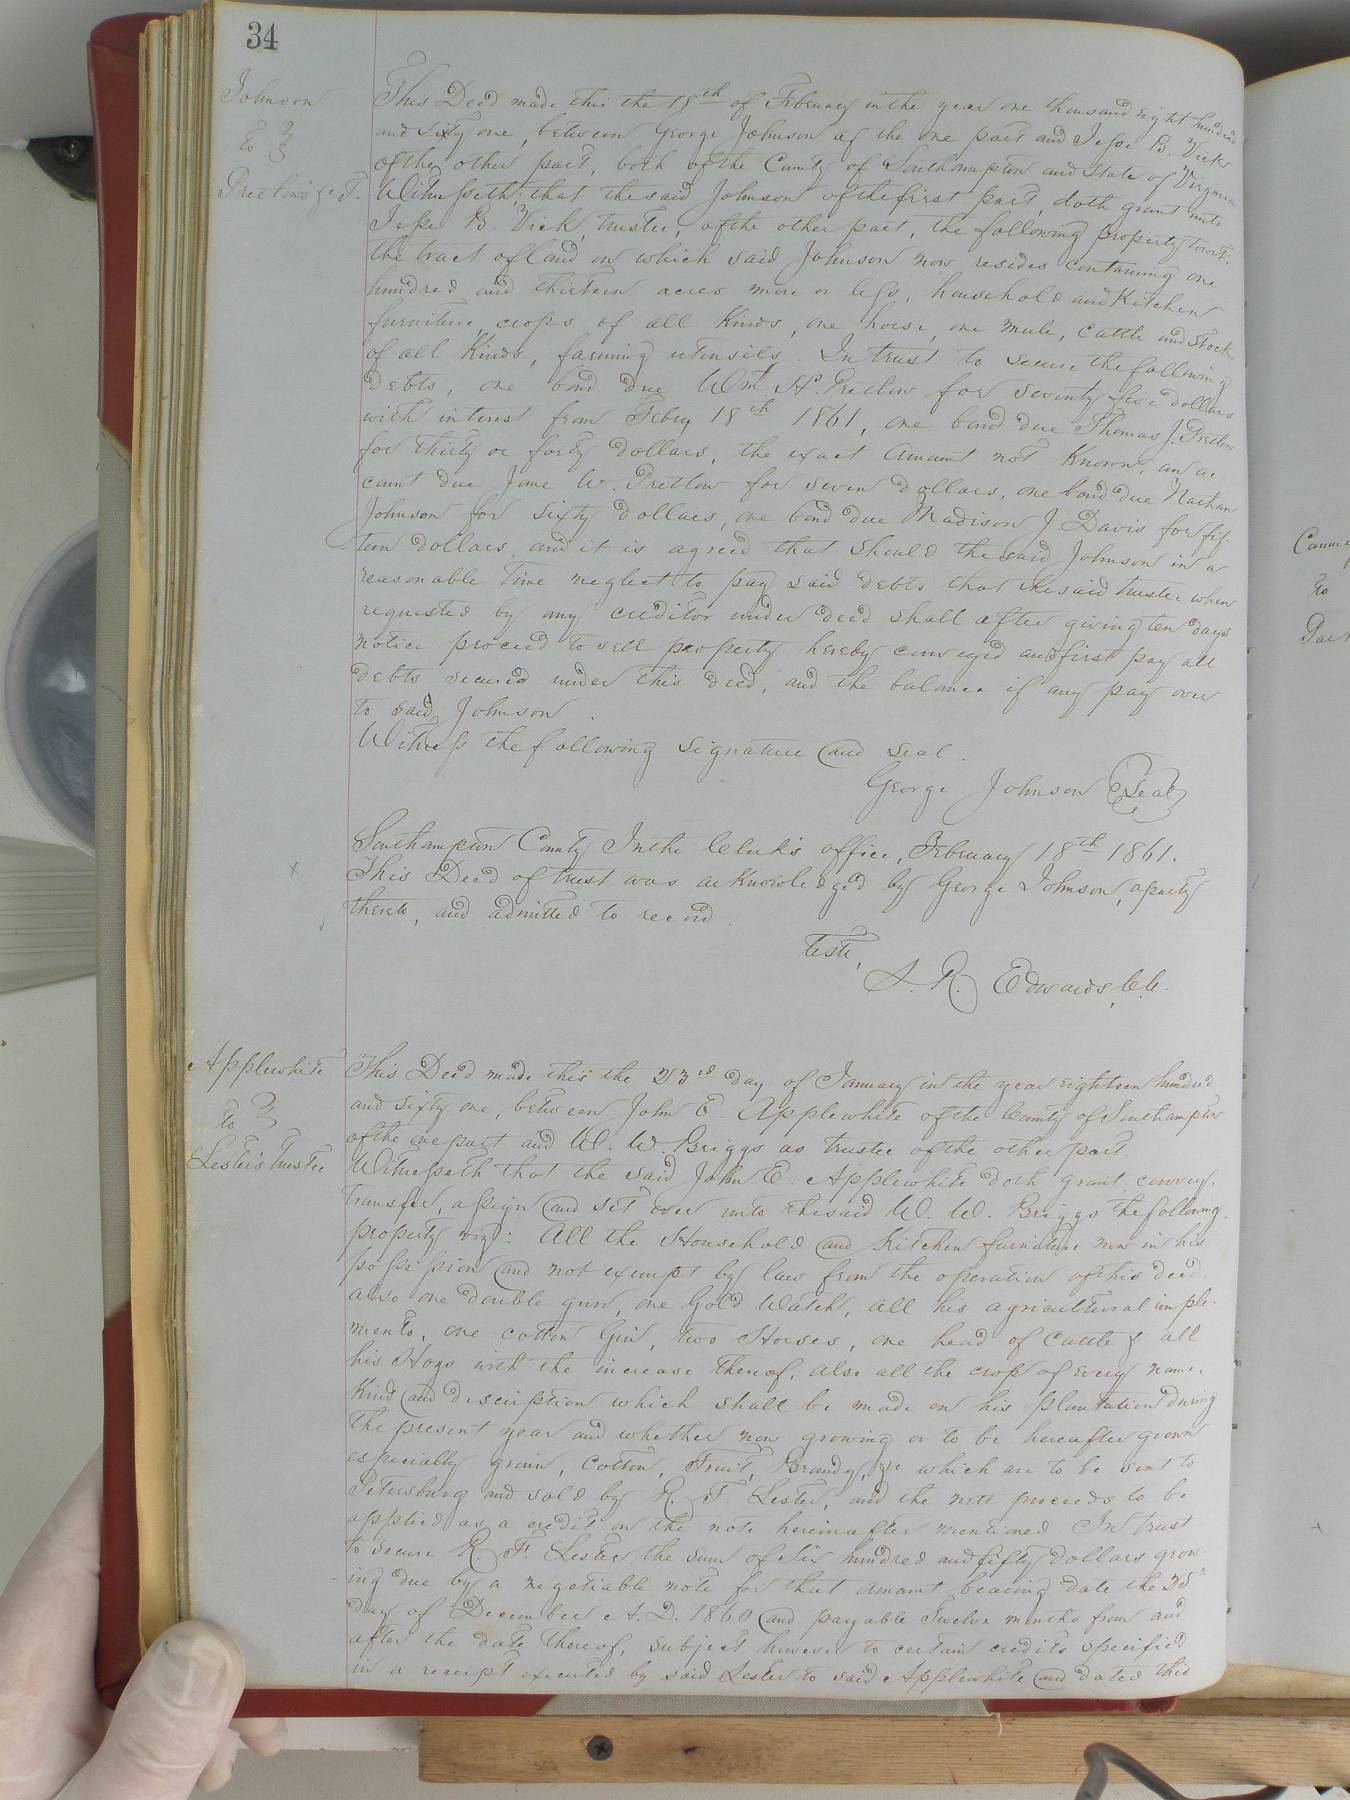 34
Johnson
to
Pretlows &c T.
This Deed made this the 18th of February in the year one thousand eight hundred
and sixty one, between George Johnson of the one part and Jesse B. Vick
of the other part, both of the County of Southampton and State of Virginia
Witnesseth: that the said Johnson of the first part, doth grant unto
Jesse B. Vick, trustee, of the other part, the following property towit:
the tract of land on which said Johnson now resides containing one
hundred and thirteen acres more or less, household and Kitchen
furniture, crops of all Kinds, one horse, one mule, cattle and stock
of all Kinds, farming utensils. In trust to secure the following
debts, one bond due Wm. H. Pretlow for seventy five dollars
with interest from Febry 18th 1861, one bond due Thomas J. Pretlow
for thirty or forty dollars, the exact amount not Known, an ac
count due Jane W. Pretlow for seven dollars, one bond due Nathan
Johnson for sixty dollars, one bond due Madison J. Davis for fif-
teen dollars, and it is agreed that should the said Johnson in a
reasonable time neglect to pay said debts that the said trustee when
requested by any creditor under deed shall after giving ten days
notice proceed to sell property hereby conveyed and first pay all
debts secured under this deed, and the balance if any pay over
to said Johnson.
Witness the following signature and seal.
George Johnson Seal
Southampton County In the Clerk's office, February 18th 1861.
This Deed of trust was acknowledged by George Johnson, a party
thereto, and admitted to record.
Teste,
L. R. Edwards, C.C.
Applewhite
to
Lester's trustee
This Deed made this the 23rd day of January in the year eighteen hundred
and sixty one, between John E. Applewhite of the County of Southampton
of the one part and W. W. Briggs as trustee of the other part.
Witnesseth that the said John E. Applewhite doth grant, convey,
transfer, assign and set over unto the said W. W. Briggs the following
property viz: All the Household and Kitchen furniture now in his
possession and not exempt by law from the operation of this deed.
also one double gun, one Gold Watch, all his agricultural imple-
ments, one cotton Gin, two Horses, one head of Cattle & all
his Hogs with the increase thereof, also all the crop of every name,
Kind and description which shall be made on his plantation during
the present year and whether now growing or to be hereafter grown
especially grain, Cotton, Fruit, Brandy, &c which are to be sent to
Petersburg and sold by R. F. Lester, and the nett proceeds to be
applied as a credit on the note hereinafter mentioned. In trust
to secure R. F. Lester the sum of Six hundred and fifty dollars grow-
ing due by a negotiable note for that amount bearing date the
day of December A.D. 1860 and payable Twelve months from and
after the date thereof, subject however to certain credits specified
in a receipt executed by said Lester to said Applewhite and dated this
to